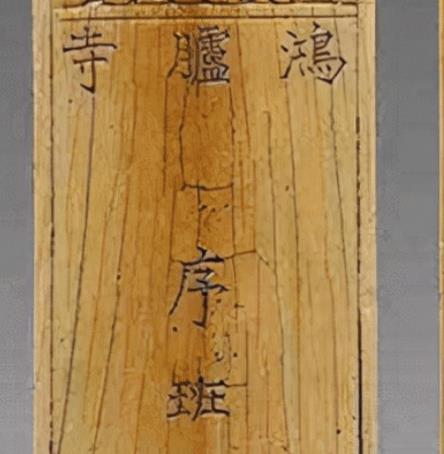 鴻臚寺
序班